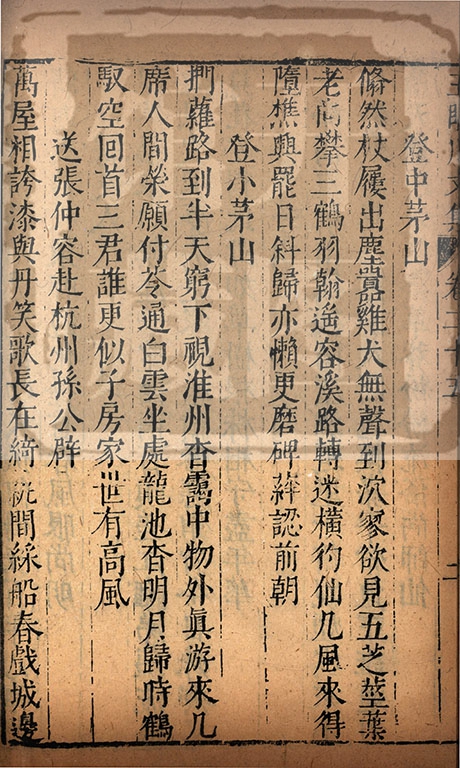 王臨川文集 卷二十五 二
登中茅山
翛然杖屨出塵囂雞犬無聲到泬寥欲見五芝莖葉
老尚攀三鶴羽翰遙容溪路轉迷橫彴仙几風來得
墮樵興罷日斜歸亦懶更磨碑蘚認前朝
登小茅山
捫蘿路到半天窮下視淮州杳靄中物外眞游來几
席人間榮願付苓通白雲坐處龍池杳明月歸時鶴
馭空回首三君誰更似子房家世有高風
送張仲容赴杭州孫公辟
萬屋相誇漆與丹笑歌長在綺紈間綵船春戲城邊